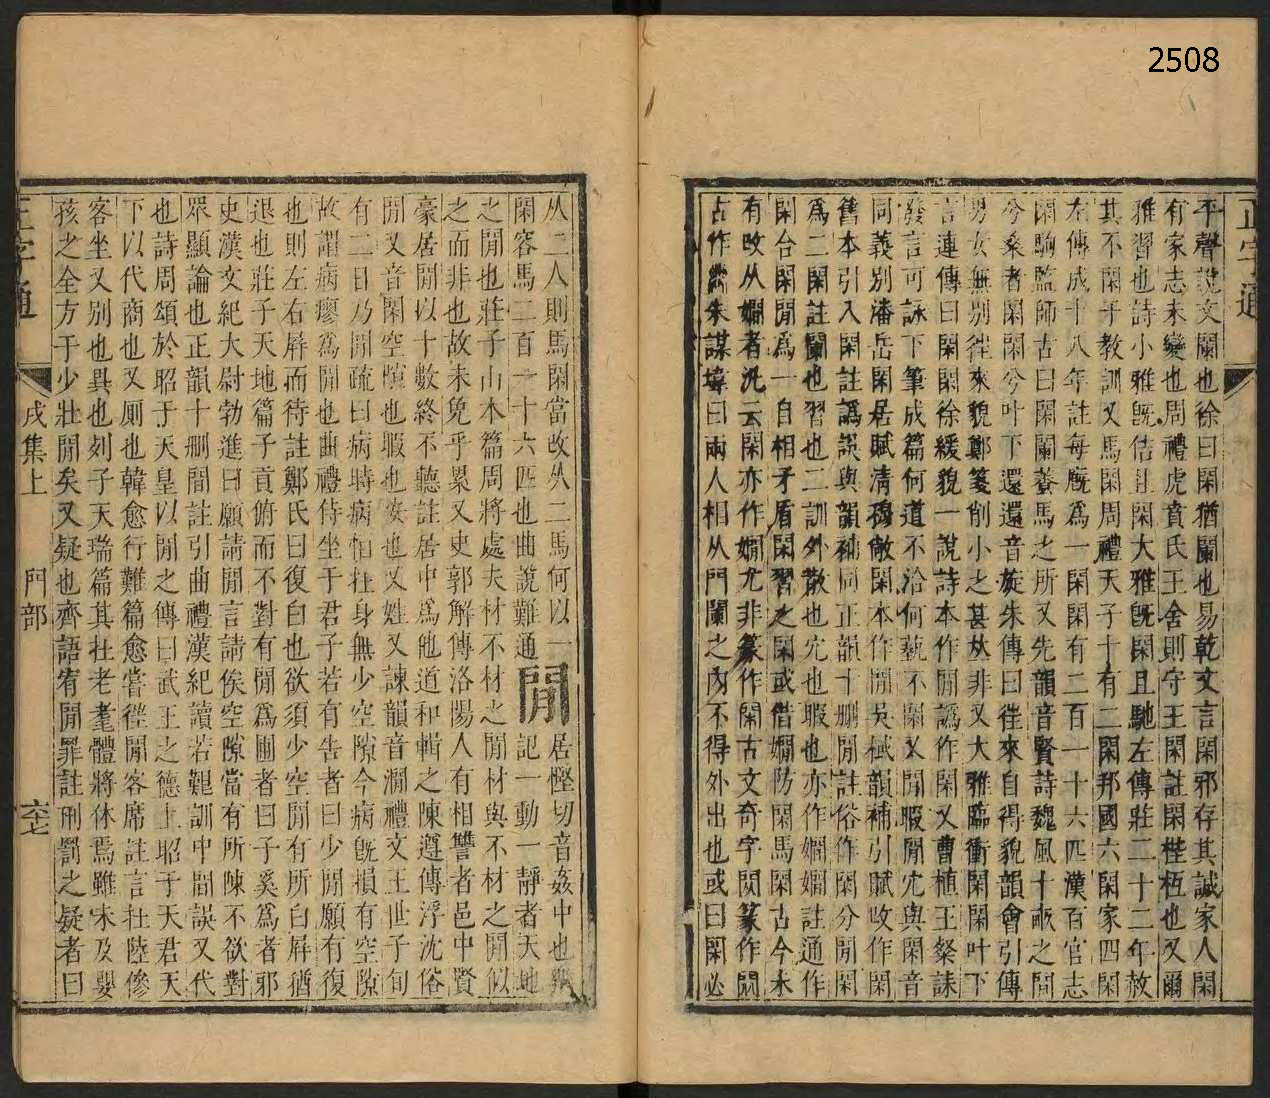 2508
正字通
平聲說文闌也徐曰閑猶闌也易乾文言閑邪存其誠家人閑
有家志未變也周禮虎賁氏王舍則守王閑註閑梐枑也又爾
雅習也詩小雅旣佶且閑大雅旣閑且馳左傳莊二十二年赦
其不閑于教訓又馬閑周禮天子十有二閑邦國六閑家四閑
左傳成十八年註每廐爲一閑閑有二百一十六匹漢百官志
閑駒監師古曰閑闌養馬之所又先韻音賢詩魏風十畝之閒
兮桑者閑閑兮叶下還還音旋朱傳曰徃來自得貌韻會引傳
男女無別徃來貌鄭箋削小之甚𠀤非又大雅臨衝閑閑叶下
言連傳曰閑閑徐緩貌一說詩本作閒譌作閑又曹植王粲誄
發言可詠下筆成篇何道不洽何藝不閑又閒暇閒宂與閑音
同義別潘岳閑居賦淸穆敞閑本作閒吳棫韻補引賦攺作閑
舊本引入閑註譌誤與韻補同正韻十刪閒註俗作閑分閒閑
爲二閑註闌也習也二訓外散也宂也暇也亦作嫺嫺註通作
閑合閑閒爲一自相矛盾閑習之閑或借嫺防閑馬閑古今未
有攺从嫺者汎云閑亦作嫺尤非篆作閑古文奇字閡篆作闕
古作 朱謀㙔曰兩人相从門闌之內不得外出也或曰閑必
从二人則馬閑當改从二馬何以一
閑容馬二百一十六匹也曲說難通閒居慳切音姦中也
記一動一靜者天地
之閒也莊子山木篇周將處夫材不材之閒材與不材之閒似
之而非也故未免乎累又史郭解傳洛陽人有相讐者邑中賢
豪居閒以十數終不聽註居中爲他道和輯之陳遵傳浮沈俗
閒又音閑空愼也暇也安也又姓又諫韻音澗禮文王世子旬
有二日乃閒疏曰病時病恒在身無少空隙今病旣損有空隙
故謂病瘳爲閒也曲禮侍坐于君子若有告者曰少閒願有復
也則左右屛而待註鄭氏曰復白也欲須少空閒有所白屛猶
退也莊子天地篇子貢俯而不對有閒爲圃者曰子奚爲者邪
史漢文紀大尉勃進曰願請閒言請俟空隙當有所陳不欲對
眾顯論也正韻十刪間註引曲禮漢紀讀若艱訓中間誤又代
也詩周頌於昭于天皇以閒之傳曰武王之德上昭于天君天
下以代商也又厠也韓愈行難篇愈嘗徃閒客席註言在陸傪
客坐又別也異也列子天瑞篇其在老耄體將休焉雖未及嬰
孩之全方于少壯閒矣又疑也齊語宥閒罪註刑罰之疑者曰
正字通
戌集上 門部 六七